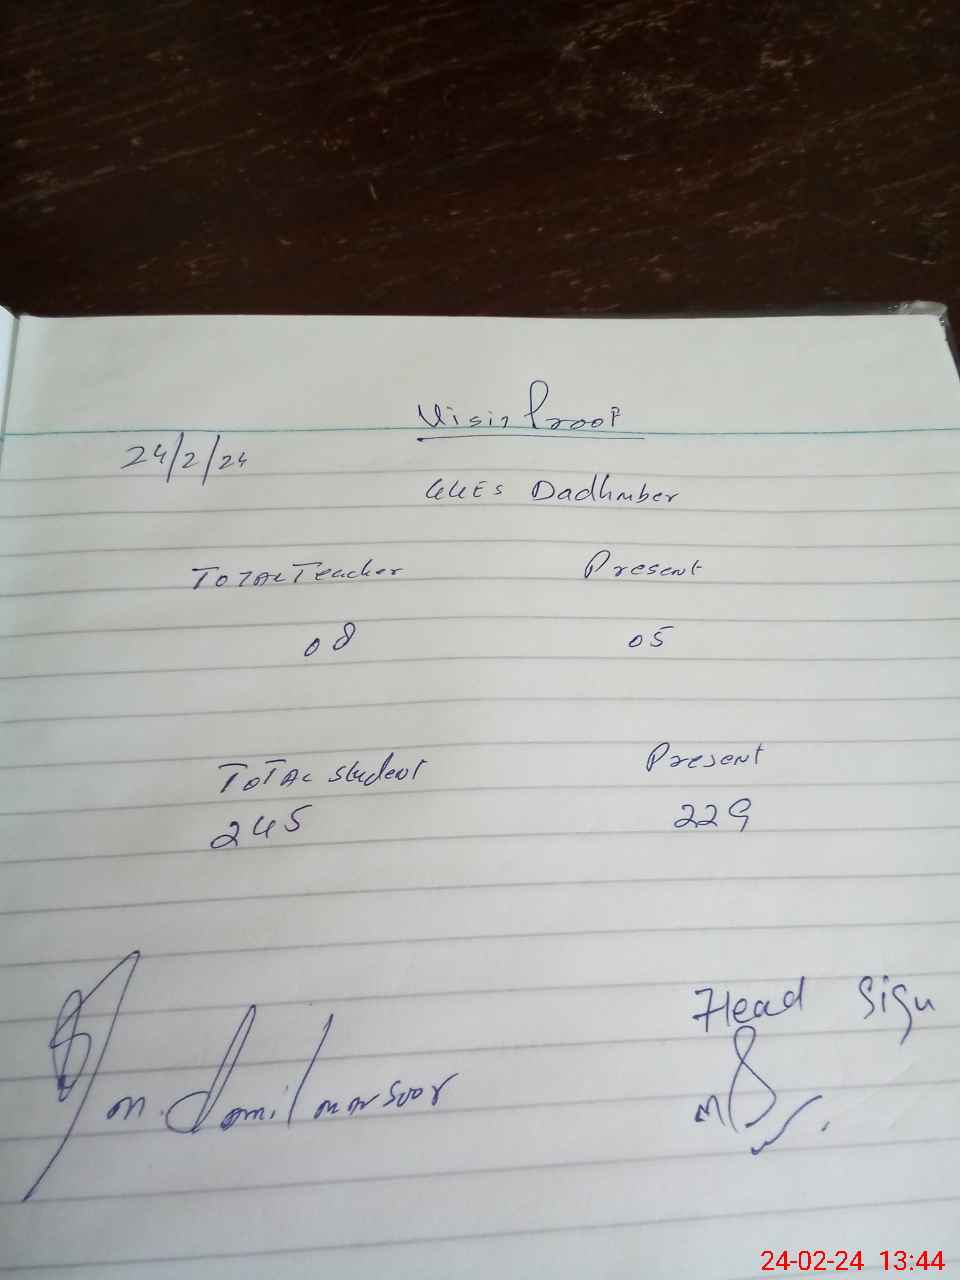 Visit Proof
24/2/24
GGES Dadhmber
Total Teacher Present
08 05
Total student Present
245 229
Head Sign
M. Jamil mansoor
24-02-24 13:44